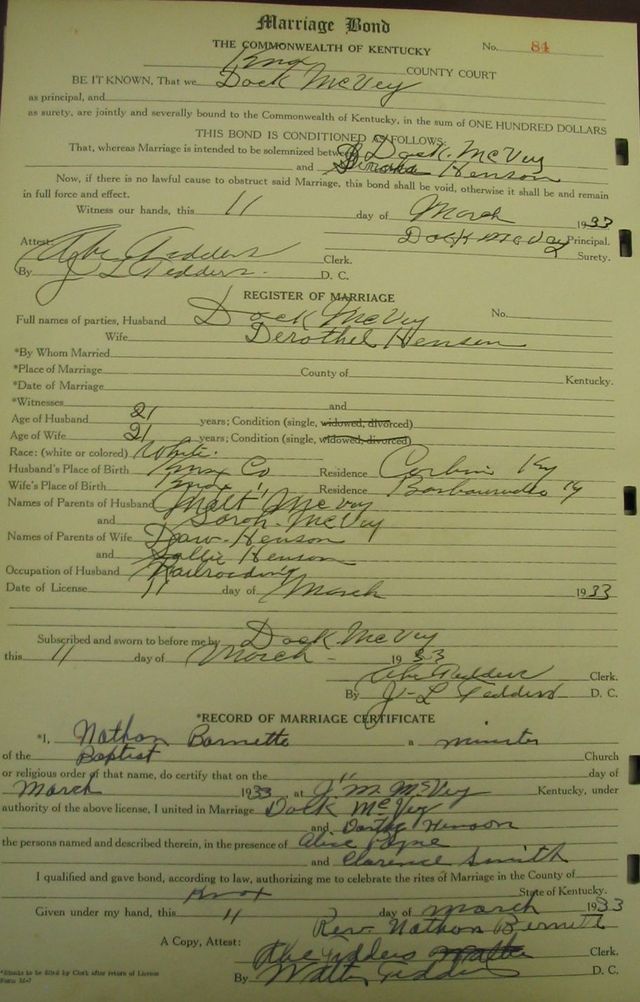 Marriage Bond
THE COMMONWEALTH OF KENTUCKY No. 84
Knox COUNTY COURT
BE IT KNOWN, That we Dock McVey
as principal, and
as surety, are jointly and severally bound to the Commonwealth of Kentucky, in the sum of ONE HUNDRED DOLLARS
THIS BOND IS CONDITIONED AS FOLLOWS:
That, whereas Marriage is intended to be solemnized between Dock McVey
and Henson
Now, if there is no lawful cause to obstruct said Marriage, this bond shall be void, otherwise it shall be and remain
in full force and effect.
Witness our hands, this 11 day of March 1933
Dock McVey Principal.
Attest: Abe Tedders Clerk. Surety.
By J L Tedders D. C.
REGISTER OF MARRIAGE
Full names of parties, Husband Dock McVey No.
Wife Derothel Henson
*By Whom Married
*Place of Marriage County of Kentucky.
*Date of Marriage
*Witnesses and
Age of Husband 21 years; Condition (single, widowed, divorced)
Age of Wife 21 years; Condition (single, widowed, divorced)
Race: (white or colored) White.
Husband's Place of Birth Knox Co Residence Corbin Ky
Wife's Place of Birth Knox " Residence Barbourville Ky
Names of Parents of Husband Milt McVey
and Sarah McVey
Names of Parents of Wife Daw Henson
and Sallie Henson
Occupation of Husband Railroading
Date of License 11 day of March 1933
Subscribed and sworn to before me by Dock McVey
this 11 day of March 1933
Abe Tedders Clerk.
By J-L Tedders D. C.
*RECORD OF MARRIAGE CERTIFICATE
*I, Nathan Barnette a minister
of the Baptist Church
or religious order of that name, do certify that on the day of
March 1933, at J M McVey Kentucky, under
authority of the above license, I united in Marriage Dock McVey
and Henson
the persons named and described therein, in the presence of Alice Payne
and Clarence Smith
I qualified and gave bond, according to law, authorizing me to celebrate the rites of Marriage in the County of
Knox State of Kentucky.
Given under my hand, this 11 day of March 1933
Rev. Nathan Barnett
A Copy, Attest: Abe Tedders Clerk.
By Walter Tedders D. C.
*Blanks to be filled by Clerk after return of License